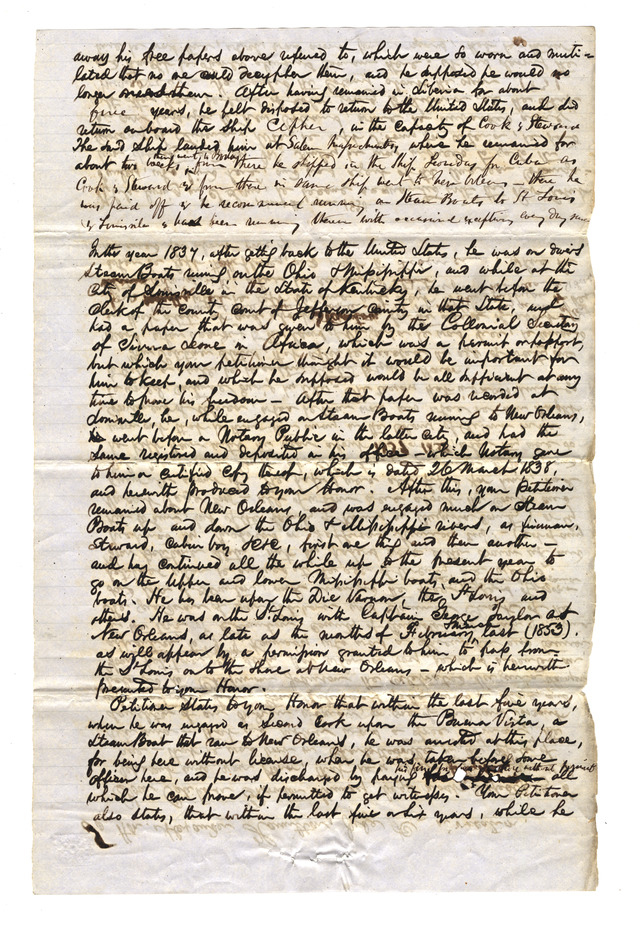 away his free papers above refered to, which were so worn and muti=
lated that no one could decypher them, and he supposed he would no
longer need them. After having remained in Liberia for about
five years, he felt disposed to return to the United States, and did
return on board the Ship Cipher, in the capacity of Cook & Steward
The said Ship landed him at Salem Massachusetts, where he remained for
about two weeks, then went to Boston from there he shipped in the Ship for Cuba as
Cook & Steward & from there in same ship went to New Orleans – there he
was paid off & he recommenced running on Steam Boats to St Louis
& Louisville & has been running there with occasional exceptions every day since
In the year 1837, after getting back to the United States, he was on divers
Steam Boats runing on the Ohio & Mississippi, and while at the
City of Louisville in the State of Kentucky, he went before the
Clerk of the County Court of Jefferson County in that State, and
had a paper that was given to him by the Collonial Secretary
of Sierra Leone in Africa, which was a permit or passport,
but which your petitioner thought it would be important for
him to keep, and which he supposed would be all sufficient at any
time to prove his freedom – After that paper was recorded at
Louisville, he, while engaged on Steam Boats runing to New Orleans,
went before a Notary Public in the latter City, and had the
same registered and deposited in his office – which Notary gave
to him a certified copy thereof, which is dated 26 March 1838,
and herewith produced to your Honor. After this, your Petitioner
remained about New Orleans, and was engaged much on Steam
Boats up and down the Ohio & Mississippi rivers, as fireman,
Steward, cabin boy &c &c, first one thing and then another –
and has continued all the while up to the present year to
go on the upper and lower Mississippi boats, and the Ohio
boats. He has been upon the Die Vernon, the St Louis and
others. He was on the St Louis with Captain George Taylor at
New Orleans, as late as the months of last (1853).
as will appear by a permission granted to him to pass from
the St Louis on to the shore at New Orleans – which is herewith
presented to your Honor.
Petitioner States to your Honor that within the last five years,
when he was engaged as Second Cook upon the Buena Vista, a
Steam Boat that ran to New Orleans, he was arrested at this place,
for being here without license, when he was taken before some
officer here, and he was discharged by paying all
which he can prove, if permitted to get witnesses. Your Petitioner
also states, that within the last five or six years, while he